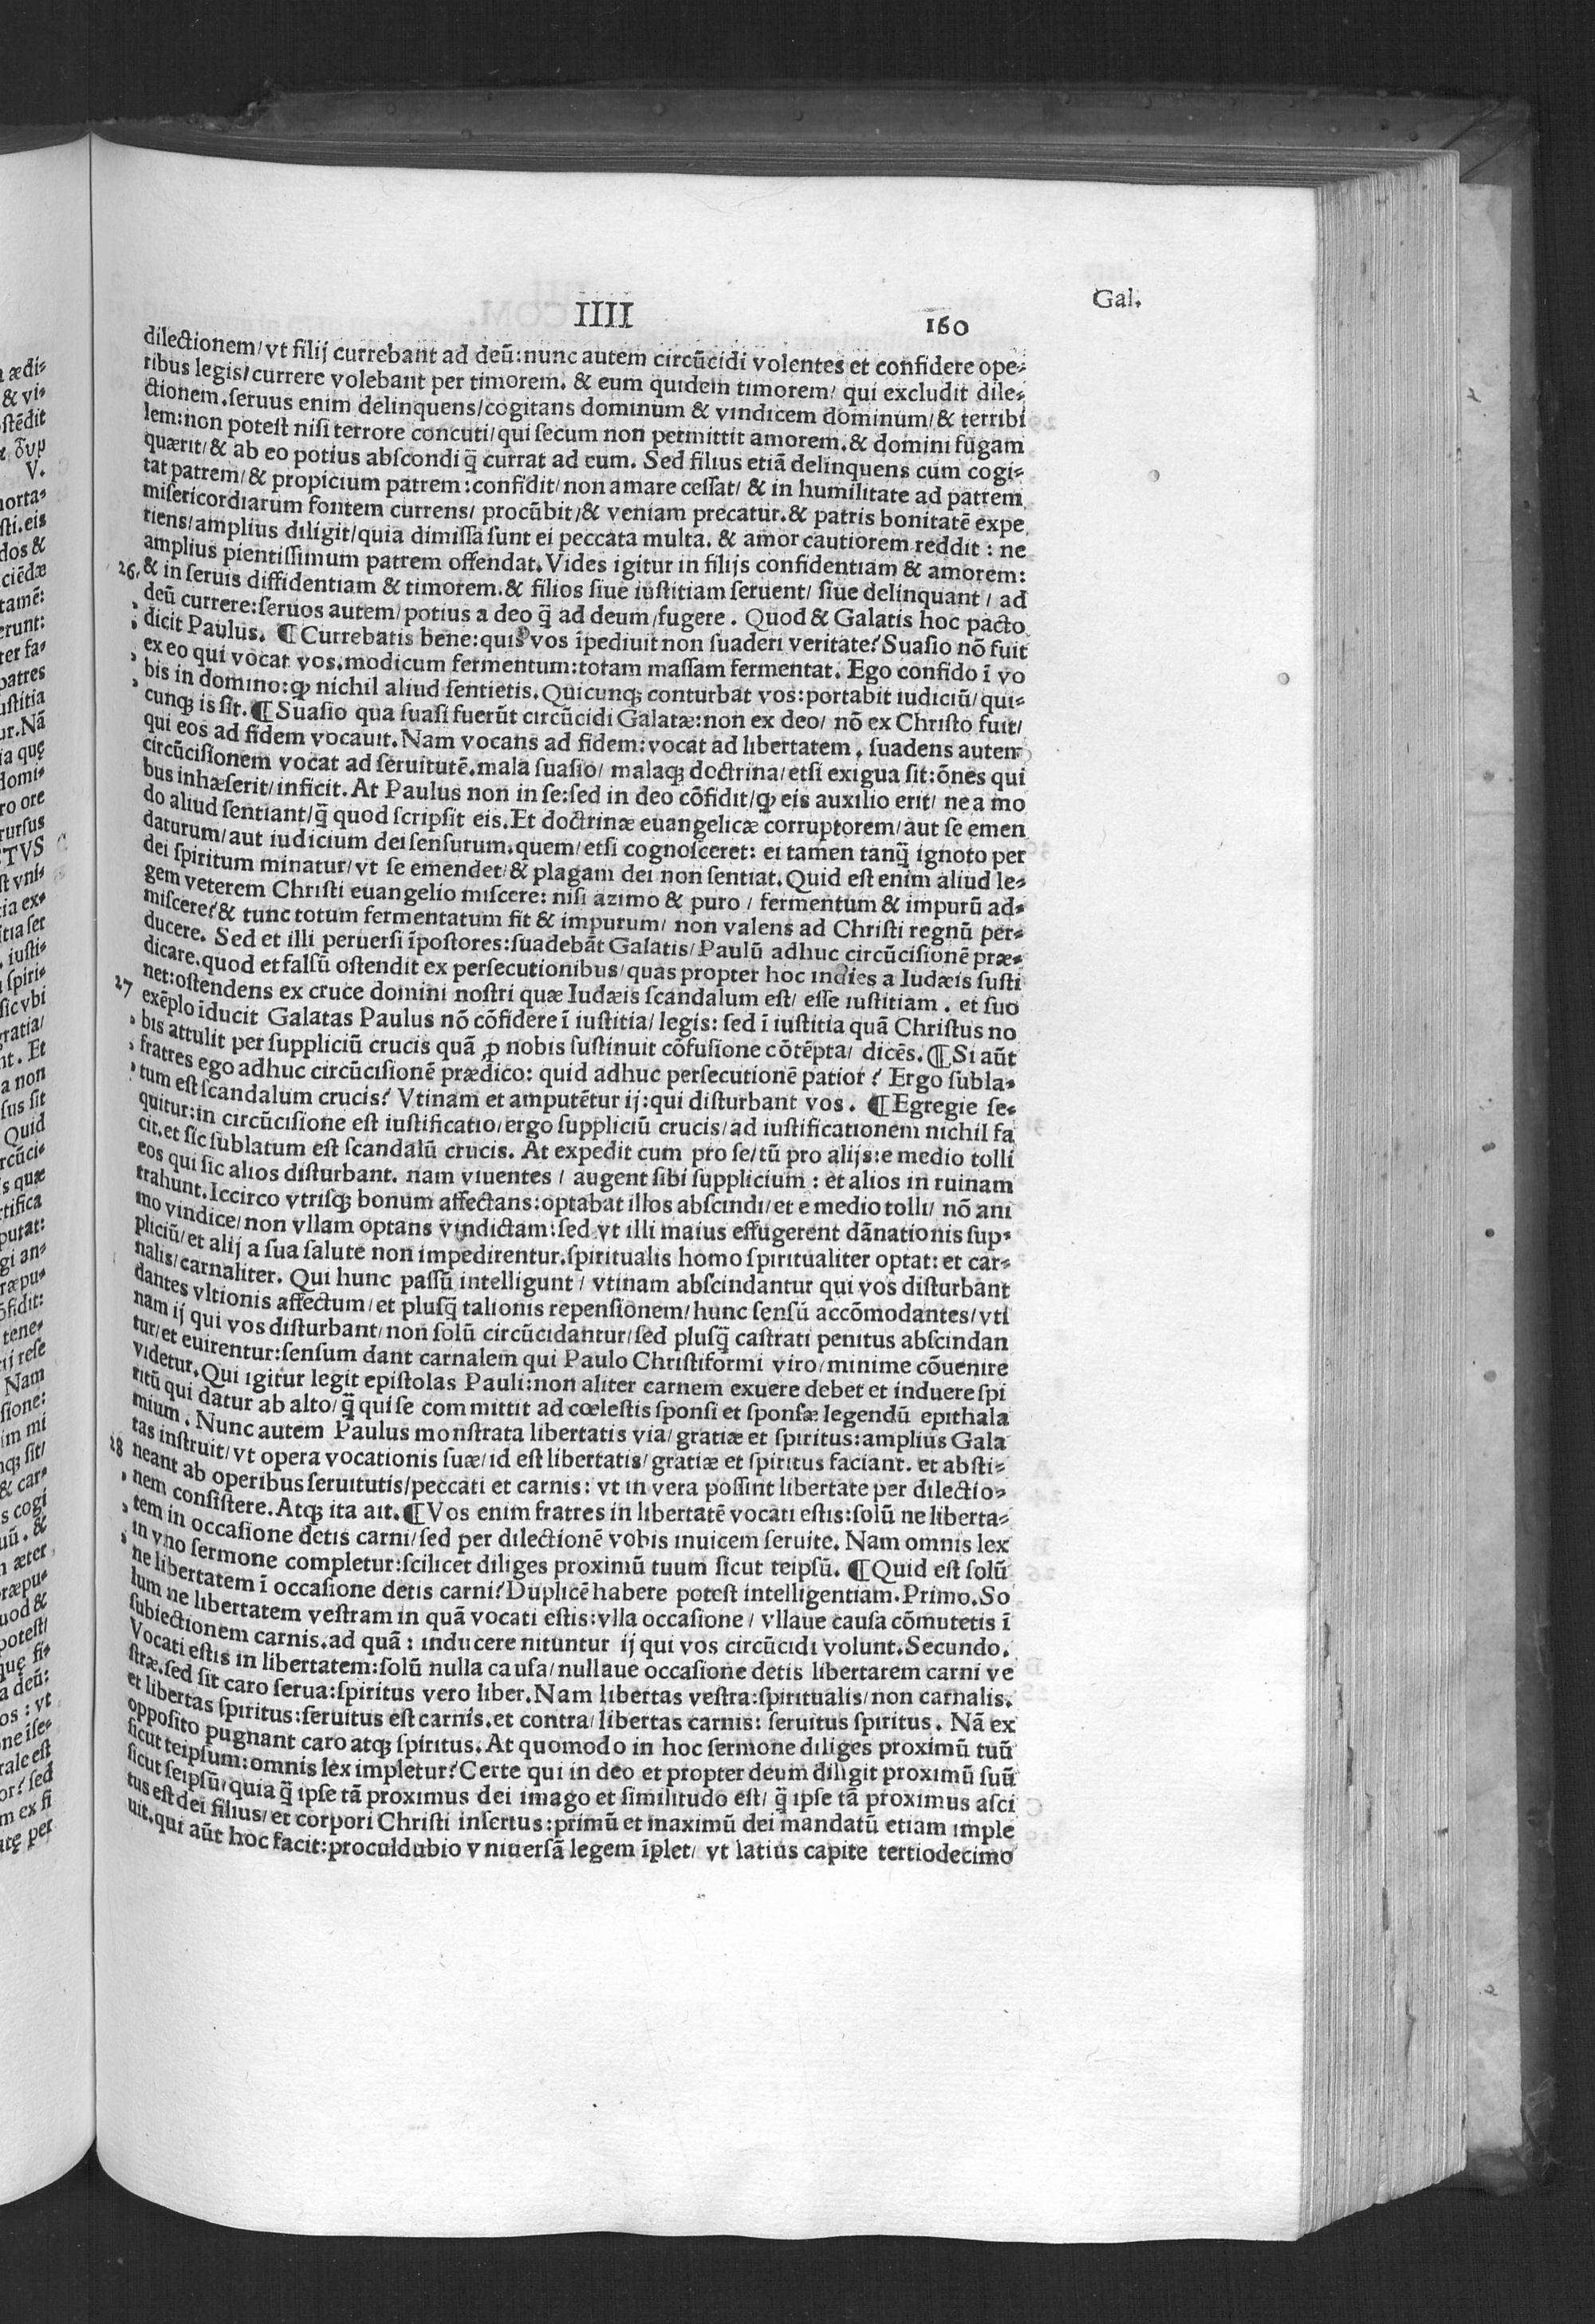 IIII
160
Gal.
dilectionem/ vt filij currebant ad deū: nunc autem circūcidi volentes et confidere ope-
ribus legis/ currere volebant per timorem. & eum quidem timorem/ qui excludit dile-
ctionem. ſeruus enim delinquens/ cogitans dominum & vindicem dominum/ & terribi
lem: non poteſt niſi terrore concuti/ qui ſecum non permittit amorem. & domini fugam
quærit/ & ab eo potius abſcondi q̃ currat ad eum. Sed filius etiā delinquens cum cogi-
tat patrem/ & propicium patrem: confidit/ non amare ceſſat/ & in humilitate ad patrem
miſericordiarum fontem currens/ procūbit/ & veniam precatur. & patris bonitatē expe
riens/ amplius diligit/ quia dimiſſa ſunt ei peccata multa. & amor cautiorem reddit: ne
amplius pientiſſimum patrem offendat. Vides igitur in filijs confidentiam & amorem:
26. & in ſeruis diffidentiam & timorem. & filios ſiue iuſtitiam ſeruent/ ſiue delinquant/ ad
deū currere: ſeruos autem/ potius a deo q̃ ad deum/ fugere. Quod & Galatis hoc pacto
dicit Paulus. ¶ Currebatis bene: quis vos īpediuit non ſuaderi veritate? Suaſio nō fuit
ex eo qui vocat vos. modicum fermentum: totam maſſam fermentat. Ego confido ī vo
bis in domino: ꝙ nichil aliud ſentietis. Quicunqꝫ conturbat vos: portabit iudiciū/ qui-
cunqꝫ is ſit. ¶ Suaſio qua ſuaſi fuerūt circūcidi Galatæ: non ex deo/ nō ex Chriſto fuit/
qui eos ad fidem vocauit. Nam vocans ad fidem: vocat ad libertatem. ſuadens autem
circūciſionem vocat ad ſeruitutē. mala ſuaſio/ malaqꝫ doctrina/ etſi exigua ſit: ōnes qui
bus inhæſerit/ inficit. At Paulus non in ſe: ſed in deo cōfidit/ ꝙ eis auxilio erit/ ne a mo
do aliud ſentiant/ q̃ quod ſcripſit eis. Et doctrinæ euangelicæ corruptorem/ aut ſe emen
daturum/ aut iudicium dei ſenſurum. quem/ etſi cognoſceret: ei tamen tanq̃ ignoto per
dei ſpiritum minatur/ vt ſe emendet/ & plagam dei non ſentiat. Quid eſt enim aliud le-
gem veterem Chriſti euangelio miſcere: niſi azimo & puro/ fermentum & impurū ad-
miſcere? & tunc totum fermentatum fit & impurum/ non valens ad Chriſti regnū per-
ducere. Sed et illi peruerſi īpoſtores: ſuadebāt Galatis/ Paulū adhuc circūciſionē præ-
dicare. quod et falſū oſtendit ex perſecutionibus/ quas propter hoc indies a Iudæis ſuſti
net: oſtendens ex cruce domini noſtri quæ Iudæis ſcandalum eſt/ eſſe iuſtitiam. et ſuo
27 exēplo iducit Galatas Paulus nō cōfidere ī iuſtitia/ legis: ſed ī iuſtitia quā Chriſtus no
bis attulit per ſuppliciū crucis quā ꝓ nobis ſuſtinuit cōfuſione cōtēpta/ dicēs. ¶ Si aūt
fratres ego adhuc circūciſionē prædico: quid adhuc perſecutionē patior? Ergo ſubla-
tum eſt ſcandalum crucis? Vtinam et amputētur ij: qui diſturbant vos. ¶ Egregie ſe-
quitur: in circūciſione eſt iuſtificatio/ ergo ſuppliciū crucis/ ad iuſtificationem nichil fa
cit. et ſic ſublatum eſt ſcandalū crucis. At expedit cum pro ſe/ tū pro alijs: e medio tolli
eos qui ſic alios diſturbant. nam viuentes/ augent ſibi ſupplicium: et alios in ruinam
trahunt. Iccirco vtriſqꝫ bonum affectans: optabat illos abſcindi/ et e medio tolli/ nō ani
mo vindice/ non vllam optans vindictam: ſed vt illi maius effugerent dānationis ſup-
pliciū/ et alij a ſua ſalute non impedirentur. ſpiritualis homo ſpiritualiter optat: et car-
nalis/ carnaliter. Qui hunc paſſū intelligunt/ vtinam abſcindantur qui vos diſturbant
dantes vltionis affectum/ et pluſq̃ talionis repenſionem/ hunc ſenſū accōmodantes/ vti
nam ij qui vos diſturbant/ non ſolū circūcidantur/ ſed pluſq̃ caſtrati penitus abſcindan
tur/ et euirentur: ſenſum dant carnalem qui Paulo Chriſtiformi viro/ minime cōuenire
videtur. Qui igitur legit epiſtolas Pauli: non aliter carnem exuere debet et induere ſpi
ritū qui datur ab alto/ q̃ qui ſe committit ad cœleſtis ſponſi et ſponſæ legendū epithala
mium. Nunc autem Paulus monſtrata libertatis via/ gratiæ et ſpiritus: amplius Gala
tas inſtruit/ vt opera vocationis ſuæ/ id eſt libertatis/ gratiæ et ſpiritus faciant. et abſti-
28 neant ab operibus ſeruitutis/ peccati et carnis: vt in vera poſſint libertate per dilectio-
nem conſiſtere. Atqꝫ ita ait. ¶ Vos enim fratres in libertatē vocati eſtis: ſolū ne liberta-
tem in occaſione detis carni/ ſed per dilectionē vobis inuicem ſeruite. Nam omnis lex
in vno ſermone completur: ſcilicet diliges proximū tuum ſicut teipſū. ¶ Quid eſt ſolū
ne libertatem ī occaſione detis carni? Duplicē habere poteſt intelligentiam. Primo. So
lum ne libertatem veſtram in quā vocati eſtis: vlla occaſione/ vllaue cauſa cōmutetis ī
ſubiectionem carnis. ad quā: inducere nituntur ij qui vos circūcidi volunt. Secundo.
Vocati eſtis in libertatem: ſolū nulla cauſa/ nullaue occaſione detis libertatem carni ve
ſtræ. ſed ſit caro ſerua: ſpiritus vero liber. Nam libertas veſtra: ſpiritualis/ non carnalis.
et libertas ſpiritus: ſeruitus eſt carnis. et contra/ libertas carnis: ſeruitus ſpiritus. Nā ex
oppoſito pugnant caro atqꝫ ſpiritus. At quomodo in hoc ſermone diliges proximū tuū
ſicut teipſum: omnis lex impletur? Certe qui in deo et propter deum diligit proximū ſuū
ſicut ſeipſū/ quia q̃ ipſe tā proximus dei imago et ſimilitudo eſt/ q̃ ipſe tā proximus aſci
tus eſt dei filius/ et corpori Chriſti inſertus: primū et maximū dei mandatū etiam imple
uit. qui aūt hoc facit: proculdubio vniuerſā legem īplet/ vt latius capite tertiodecimo